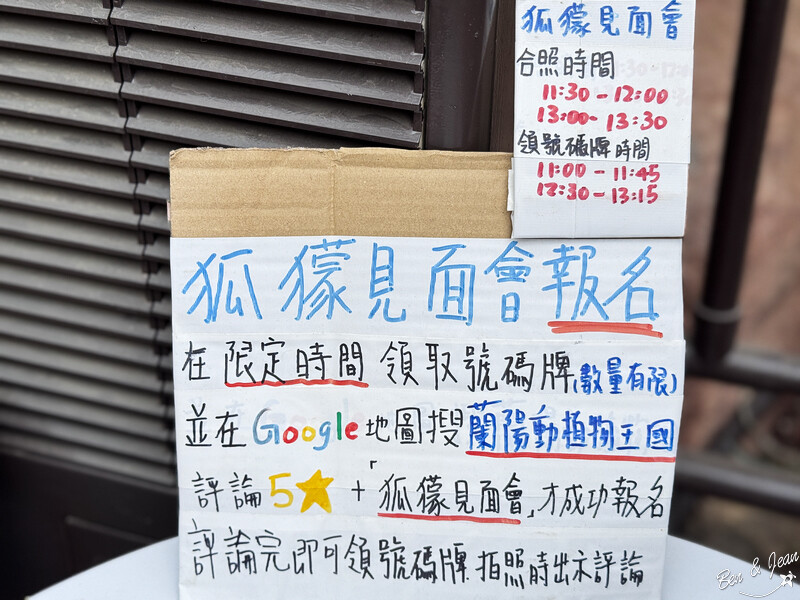 狐獴見面會
合照時間
11:30-12:00
13:00-13:30
領號碼牌時間
11:00-11:45
12:30-13:15
狐獴見面會報名
在限定時間 領取號碼牌(數量有限)
並在Google地圖搜蘭陽動植物王國
評論5★+「狐獴見面會」才成功報名
評論完即可領號碼牌.拍照時出示評論
Ben & Jean